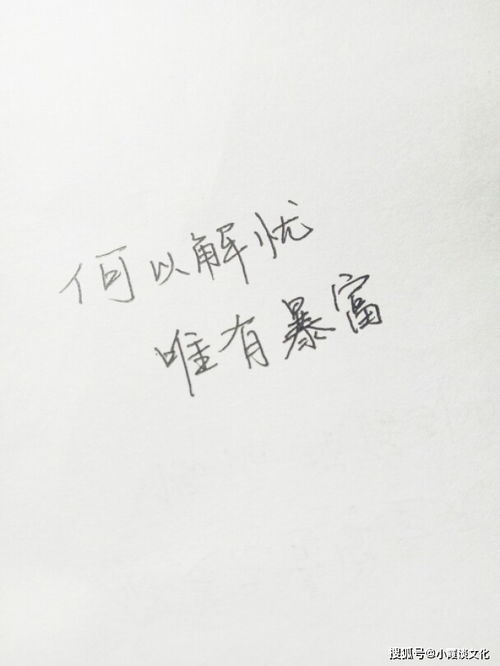 何以解忧
唯有暴富
搜狐号@小霞谈文化